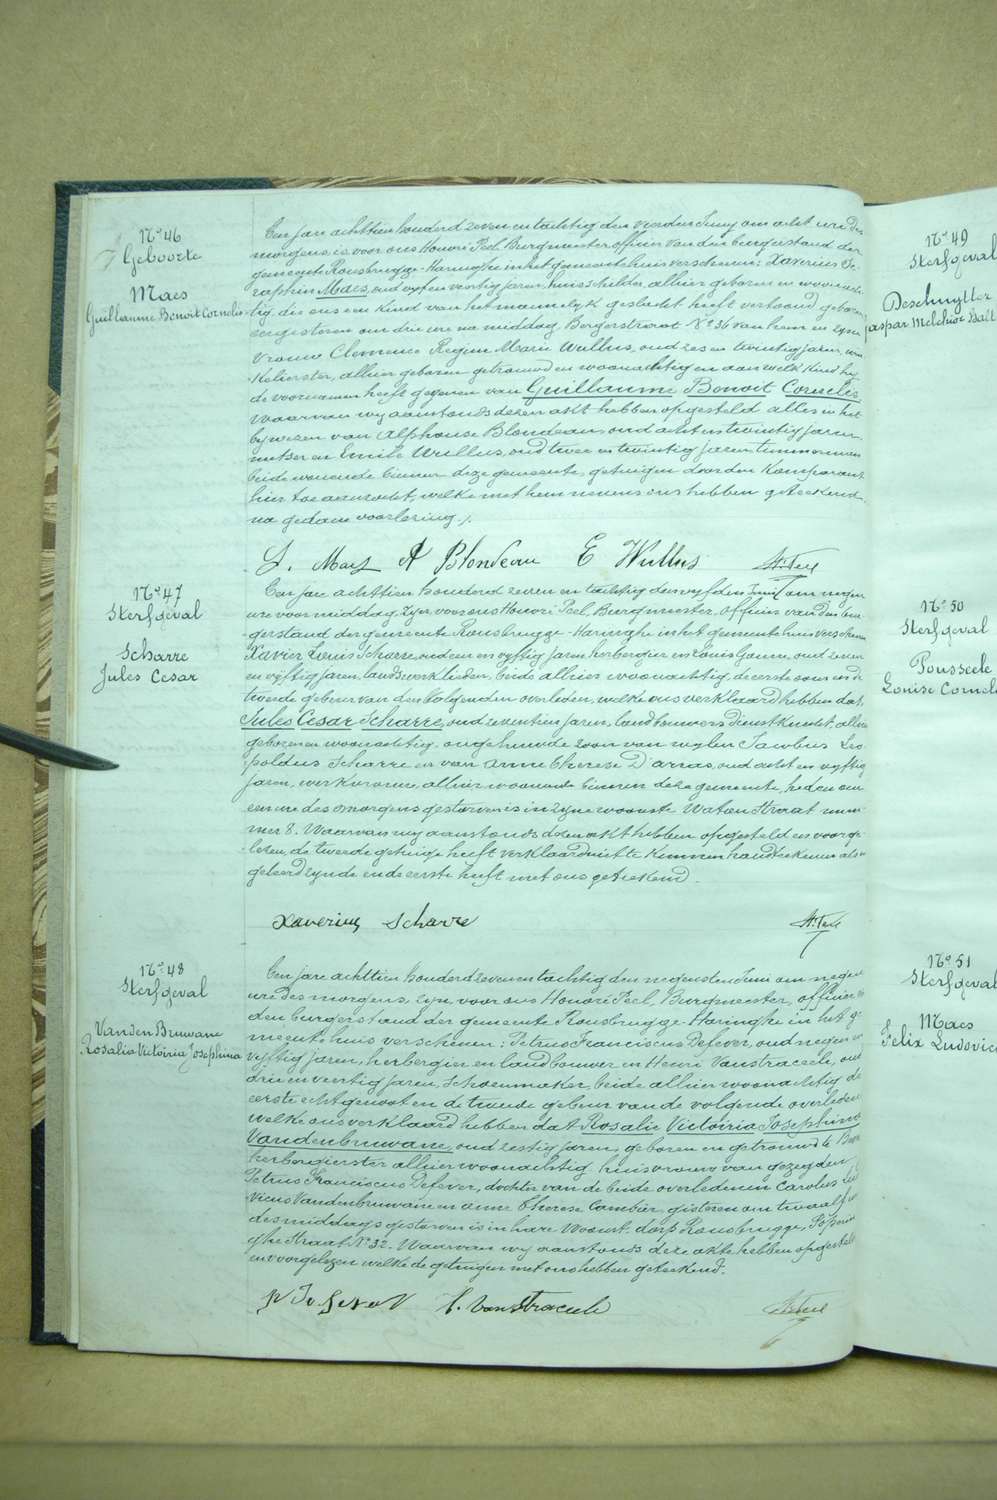 N° 46
Geboorte
Maes
Guillaume Benoit Cornelis
Een jare achttien honderd zeven en tachtig den vierden Juny om acht ure des
morgens, is voor ons Honoré Peel, Burgmeester officier van den burgerstand der
gemeente Rousbrugge-Haringhe in het gemeentehuis verschenen: Xaverius Se-
raphin Maes, oud vyf en veertig jaren, huisschilder, alhier geboren en woonach-
tig, die ons een kind van het mannelyk geslacht heeft vertoond, geboren
eergisteren om drie ure na middag, Bergerstraat N° 36 van hem en zyne
vrouw Clemence Regine Marie Wullus, oud zes en twintig jaren, win-
kelierster, alhier geboren getrouwd en woonachtig en aan welk kind hy
de voornamen heeft gegeven van Guillaume Benoit Cornelis
Waarvan wy aanstonds dezen akt hebben opgesteld alles in het
bywezen van Alphonse Blondeau, oud acht en twintig jaren,
metser en Emile Wullus, oud twee en twintig jaren, timmerman
beide wonende binnen deze gemeente, getuigen door den komparant
hier toe aanzocht, welke met hem nevens ons hebben geteekend
na gedane voorlezing /.
S. Maes A Blondeau E Wullus Hr. Peel
N° 47
Sterfgeval
Scharre
Jules Cesar
Een jare achttien honderd zeven en tachtig den vyfden Juni om negen
ure voor middag, zyn voor ons Honoré Peel, Burgmeester, officier van den bur-
gerstand der gemeente Rousbrugge-Haringhe in het gemeentehuis verschenen
Xavier Louis Scharre, oud een en vyftig jaren, herbergier en Louis Gaune, oud zeven
en vyftig jaren, landswerklieden, beide alhier woonachtig, de eerste oom en de
tweede gebuur van den volgenden overleden, welke ons verklaard hebben dat
Jules César Scharre, oud zeventien jaren, landbouwers dienstknecht, alhier
geboren en woonachtig, ongehuwde zoon van wylen Jacobus Leo-
poldus Scharre en van Anne Therese D'arras, oud acht en vyftig
jaren, werkvrouw alhier wonende binnen deze gemeente, heden om
een ure des morgens gestorven is in zyne woonst Watou straat num-
mer 8. Waarvan wy aanstonds dezen akt hebben opgesteld en voorge-
lezen, de tweede getuige heeft verklaard niet te kunnen handteekenen als on-
geleerd zynde en de eerste heeft met ons geteekend.
Xaverius Scharre Hr. Peel
N° 48
Sterfgeval
Vanden Bruwane
Rosalia Victoiria Josephina
Een jare achttien honderd zeven en tachtig den negensten Juni om negen
ure des morgens, zyn voor ons Honoré Peel, Burgmeester, officier van
den burgerstand der gemeente Rousbrugge-Haringhe in het ge-
meentehuis verschenen: Petrus Franciscus Defever, oud negen en
vyftig jaren, herbergier en landbouwer en Henri Vanstraceele, oud
drie en veertig jaren, schoenmaker, beide alhier woonachtig de
eerste echtgenoot en de tweede gebuur van de volgende overledene
welke ons verklaard hebben dat Rosalie Victoiria Josephina
Vandenbruwane, oud zestig jaren, geboren en getrouwd te
herbergierster alhier woonachtig, huisvrouw van gezegden
Petrus Franciscus Defever, dochter van de beide overledenen Carolus Lu-
vicus Vandenbruwane en Anne Therese Cambier, gisteren om twaalf ure
des middags gestorven is in hare woonst dorp Rousbrugge, Poperin-
ghe straat N° 32. Waarvan wy aanstonds deze akte hebben opgesteld
en voorgelezen welke de getuigen met ons hebben geteekend.
H. Vanstraceele Hr. Peel
N° 49
Sterfgeval
Deschuytter
Jaspar Melchior Balt
N° 50
Sterfgeval
Pousseele
Louise Corneli
N° 51
Sterfgeval
Maes
Felix Ludovicu